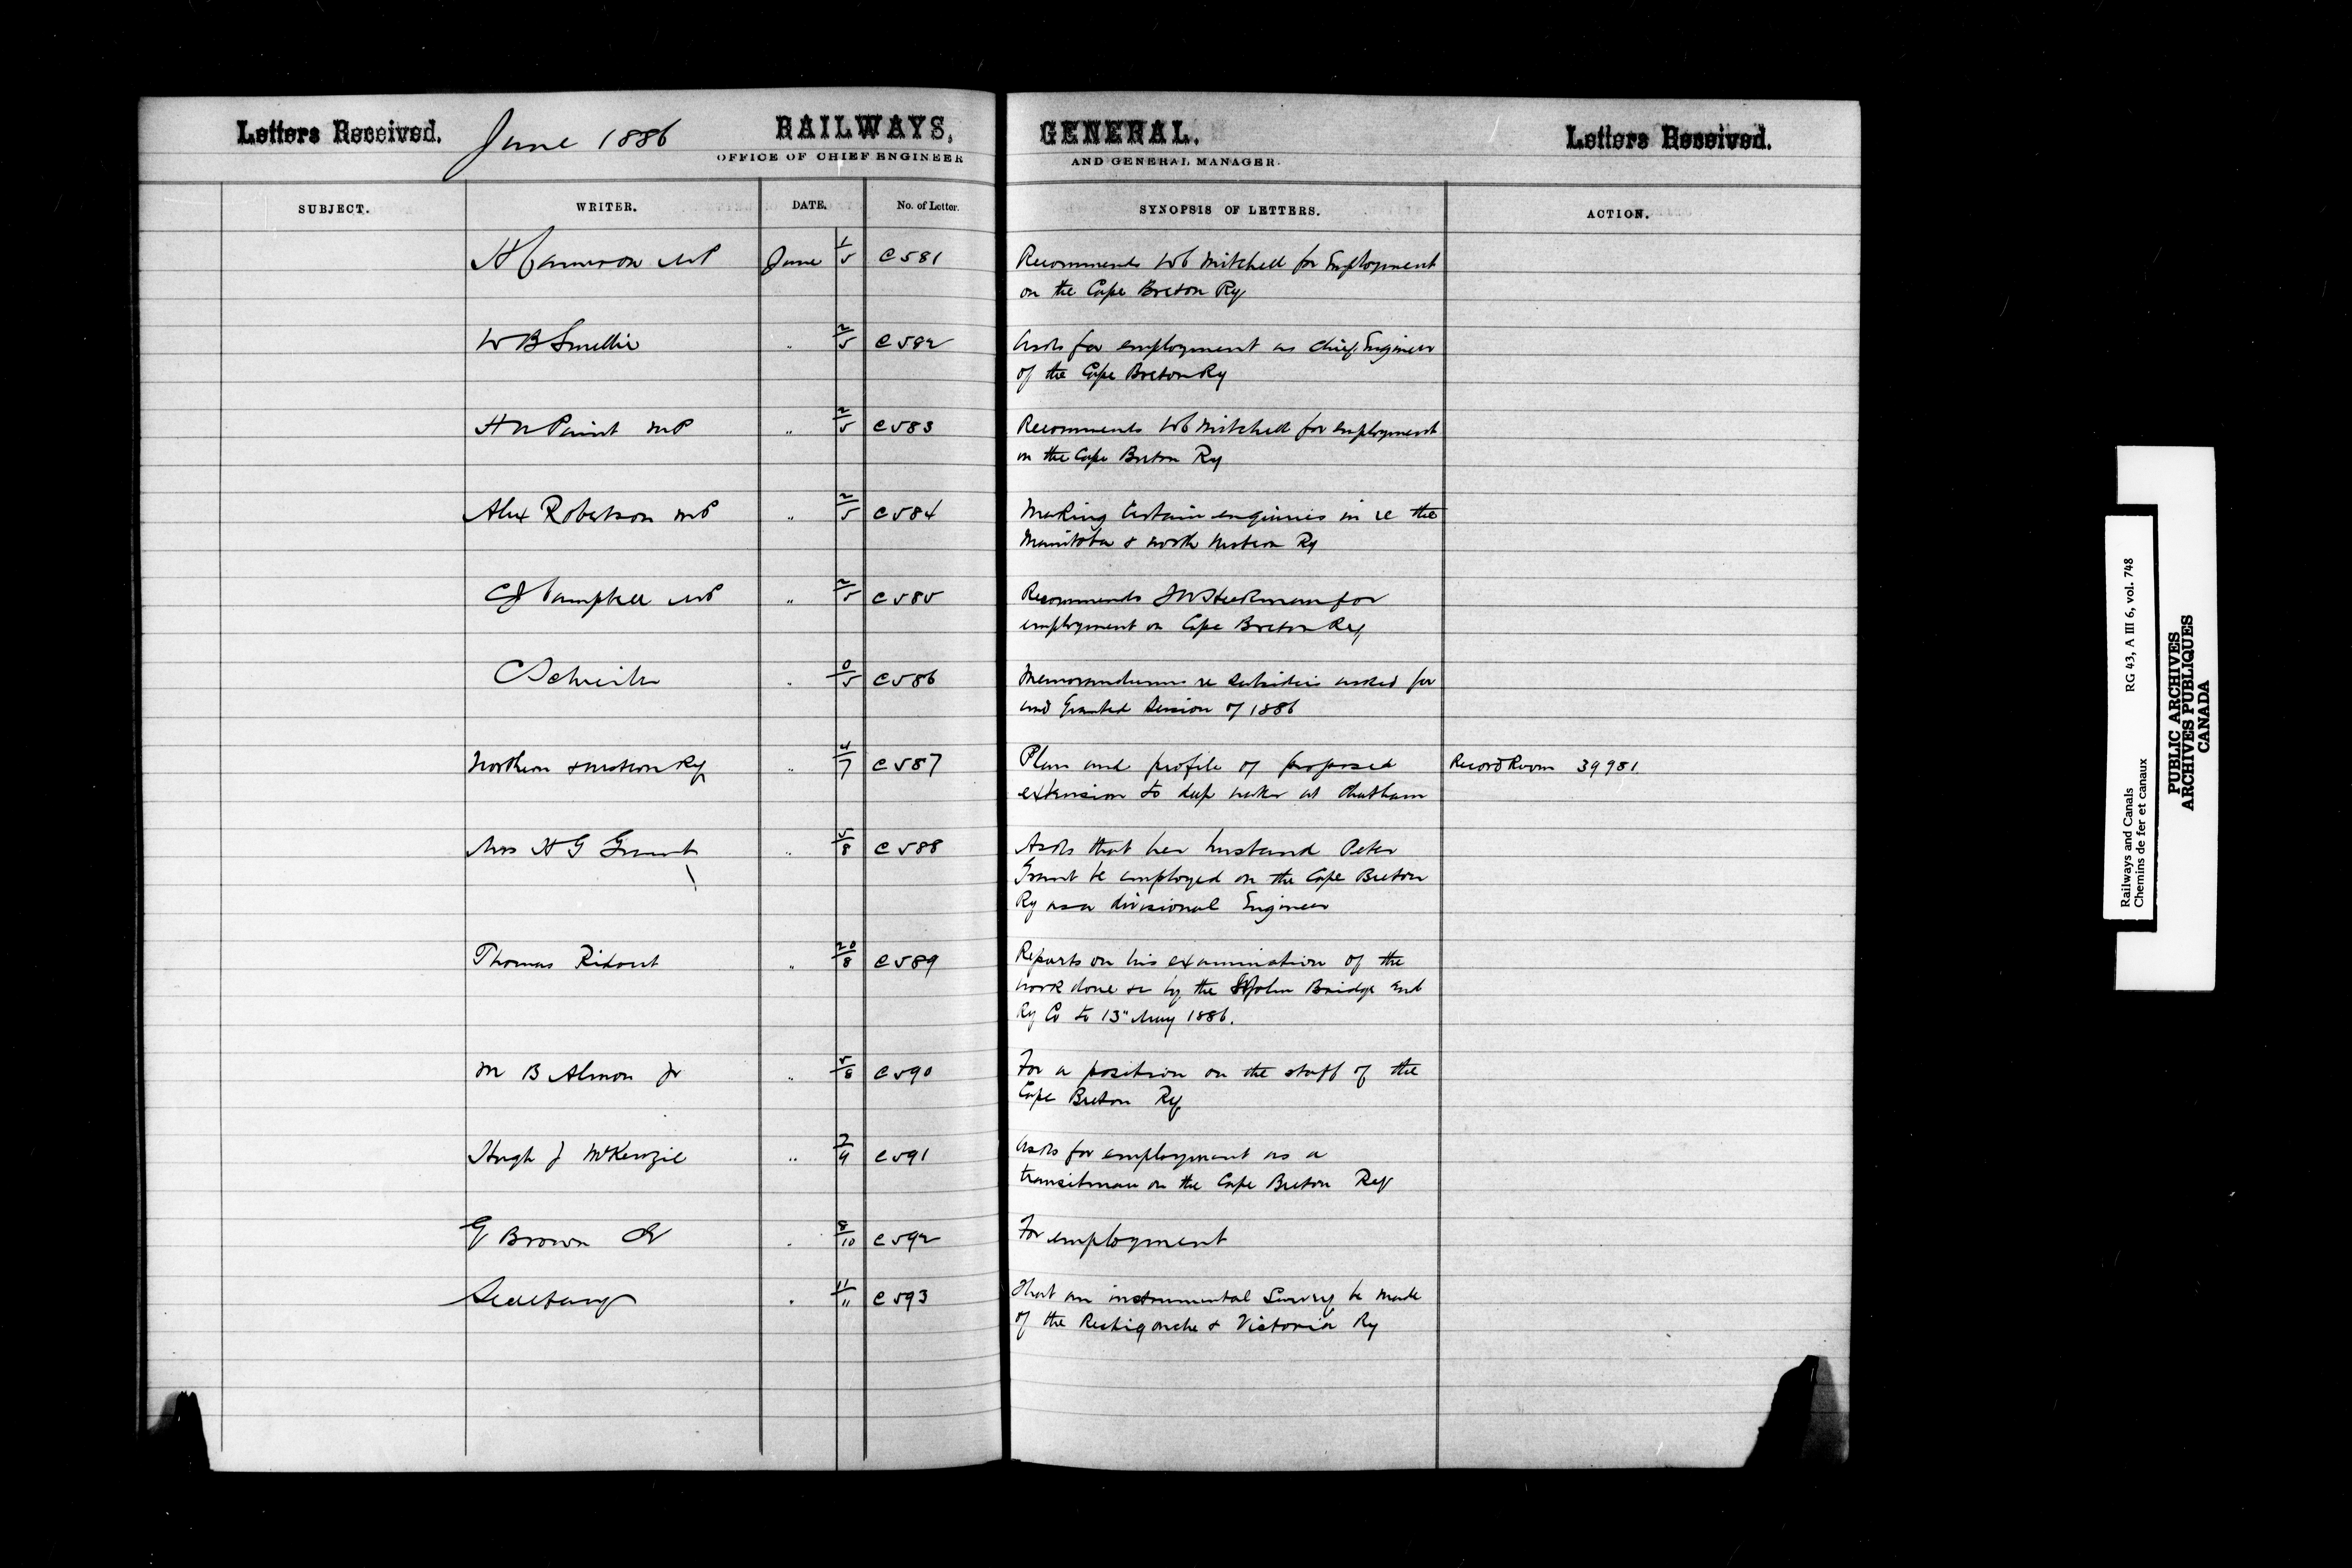 Letters Received. June 1886 RAILWAYS, GENERAL. Letters Received.
OFFICE OF CHIEF ENGINEER AND GENERAL MANAGER.
SUBJECT. WRITER. DATE. No. of Letter. SYNOPSIS OF LETTERS. ACTION.
H Cameron MP June 1/5 C581 Recommends WC Mitchell for Employment
on the Cape Breton Ry
W B Smellie " 2/5 C582 Asks for employment as Chief Engineer
of the Cape Breton Ry
H N Paint MP " 2/5 C583 Recommends WC Mitchell for employment
on the Cape Breton Ry
Alex Robertson MP " 2/5 C584 Making Certain enquiries in re the
Manitoba & North Western Ry
C J Campbell MP " 2/5 C585 Recommends for
employment on Cape Breton Ry
C Schreiber " 0/5 C586 Memorandum re Subsidies asked for
and Granted Session of 1886
Northern & Western Ry " 4/7 C587 Plan and profile of proposed Record Room 39981
extension to deep water at Chatham
Mrs H G Grant " 5/8 C588 Asks that her husband Peter
Grant be employed on the Cape Breton
Ry as a divisional Engineer
Thomas Ridout " 20/8 C589 Reports on his examination of the
work done &c by the St John Bridge and
Ry Co to 13" May 1886.
M B Almon Jr " 5/8 C590 For a position on the staff of the
Cape Breton Ry
Hugh J McKenzie " 7/9 C591 Asks for employment as a
transitman on the Cape Breton Ry
G Brown " 8/10 C592 For employment
Secretary " 11/" C593 That an instrumental Survey be made
of the Restigouche & Victoria Ry
Railways and Canals RG 43, A III 6, vol. 748
Chemins de fer et canaux
PUBLIC ARCHIVES
ARCHIVES PUBLIQUES
CANADA